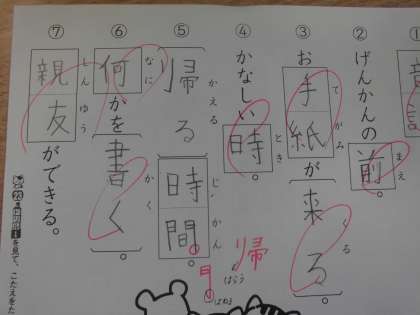 ①
②
げんかんの前。
まえ
③
お手紙が来る。
てがみ
くる
④
かなしい時。
とき
⑤
帰る時間。
かえる
じかん
帰
はらう
はねる
⑥
何かを書く。
なに
かく
⑦
親友ができる。
しんゆう
を見て、こたえをた